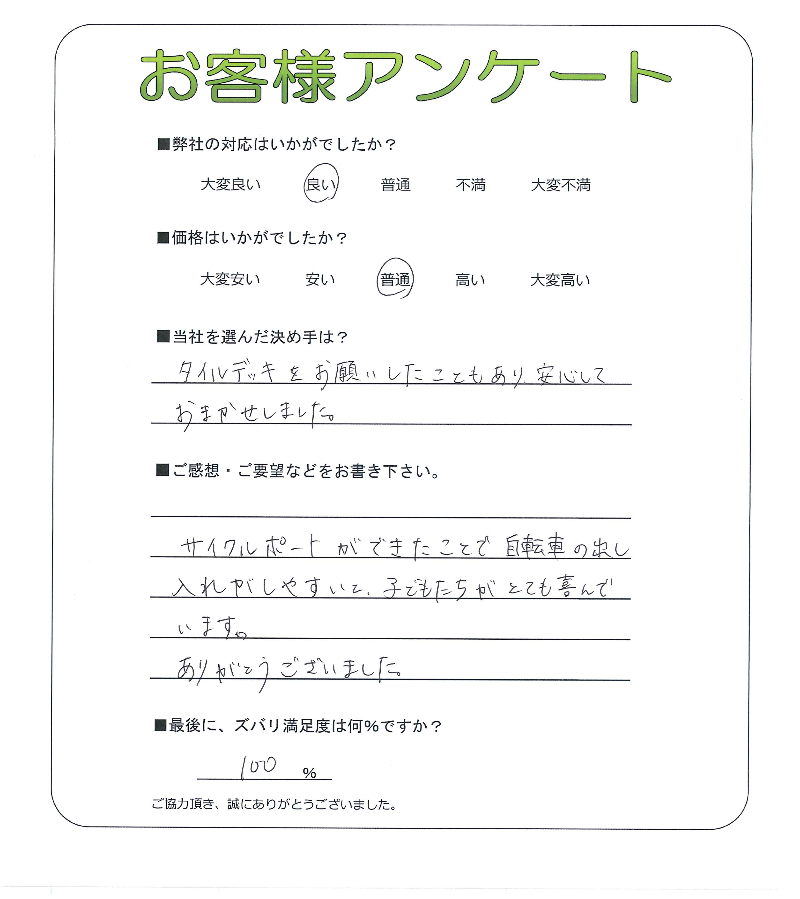 お客様アンケート
■弊社の対応はいかがでしたか？
大変良い 良い 普通 不満 大変不満
■価格はいかがでしたか？
大変安い 安い 普通 高い 大変高い
■当社を選んだ決め手は？
タイルデッキをお願いしたこともあり、安心して
おまかせしました。
■ご感想・ご要望などをお書き下さい。
サイクルポートができたことで自転車の出し
入れがしやすいと、子どもたちがとても喜んで
います。
ありがとうございました。
■最後に、ズバリ満足度は何％ですか？
100 ％
ご協力頂き、誠にありがとうございました。